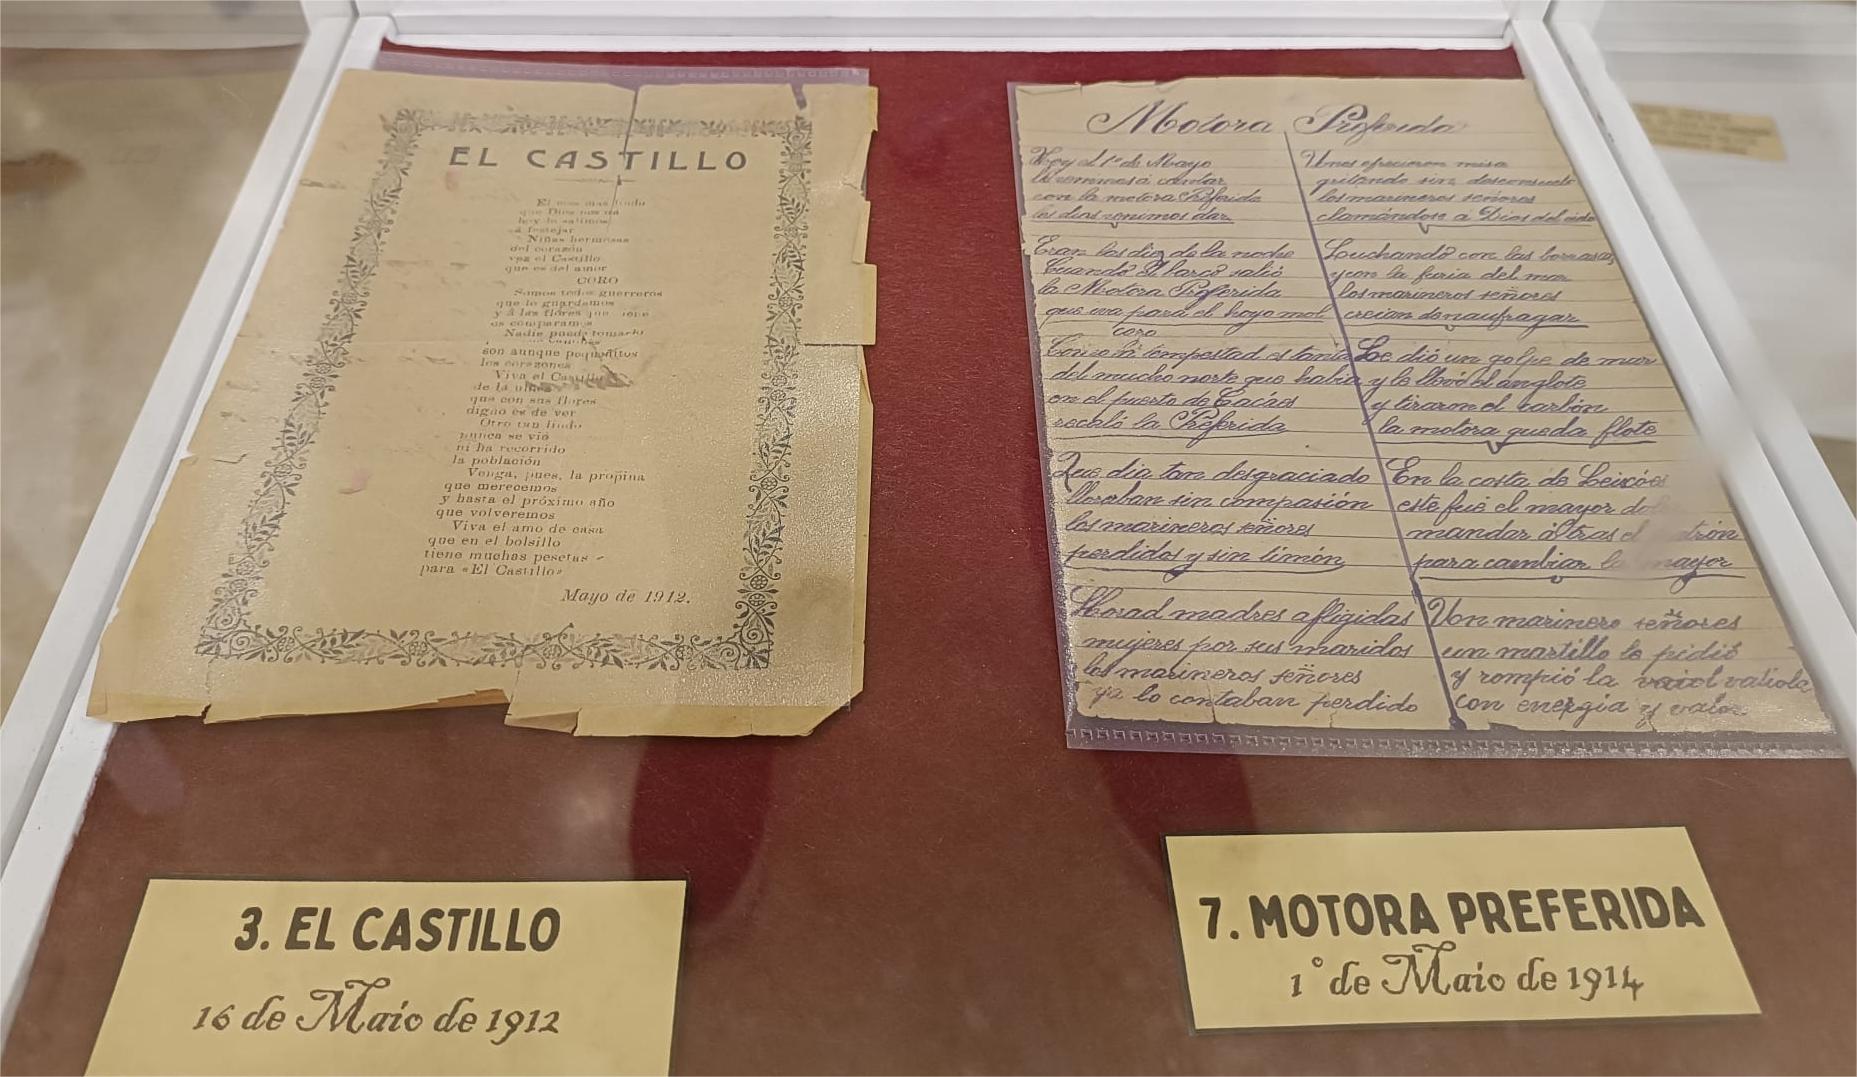 EL CASTILLO
El mes mas lindo
que Dios nos da
hoy la salimos
á festejar
Niñas hermosas
del corazón
vea el Castillo
que es del amor
CORO
Somos todos guerreros
que lo guardamos
y á las flores que tiene
os comparamos
Nadie puede tomarlo
son aunque poquititos
los corazones
Viva el Castillo
de la
que con sus flores
digno es de ver
Otro tan lindo
nunca se vió
ni ha recorrido
la población
Venga, pues, la propina
que merecemos
y hasta el próximo año
que volveremos
Viva el amo de casa
que en el bolsillo
tiene muchas pesetas
para «El Castillo»
Mayo de 1912.
Motora Preferida
Hoy el 1º de Mayo
le venimos á cantar
con la motora Preferida
los dias venimos dar
Eran las diez de la noche
Cuando el barco salió
la Motora Preferida
que iva para el hoyo mol
coro
del mucho norte que habia
en el puerto de Cacáes
recaló la Preferida
Que dia tan desgraciado
lloraban sin compasión
los marineros señores
perdidos y sin timón
Llorad madres afligidas
mujeres por sus maridos
los marineros señores
ya lo contaban perdido
Unos ofrecieron misa
gritando sin desconsuelo
los marineros señores
clamándose á Dios del cielo
Luchando con las borrasas
y con la furia del mar
los marineros señores
creian de naufragar
Le dió un golpe de mar
y le llevó el anglote
y tiraron el carbón
la motora queda flote
En la costa de Leixóes
este fué el mayor
mandar atras el patrón
para cambiar la mayor
Un marinero señores
un martillo le pidió
y rompió la valiola
con energia y valor
3. EL CASTILLO
16 de Maio de 1912
7. MOTORA PREFERIDA
1º de Maio de 1914